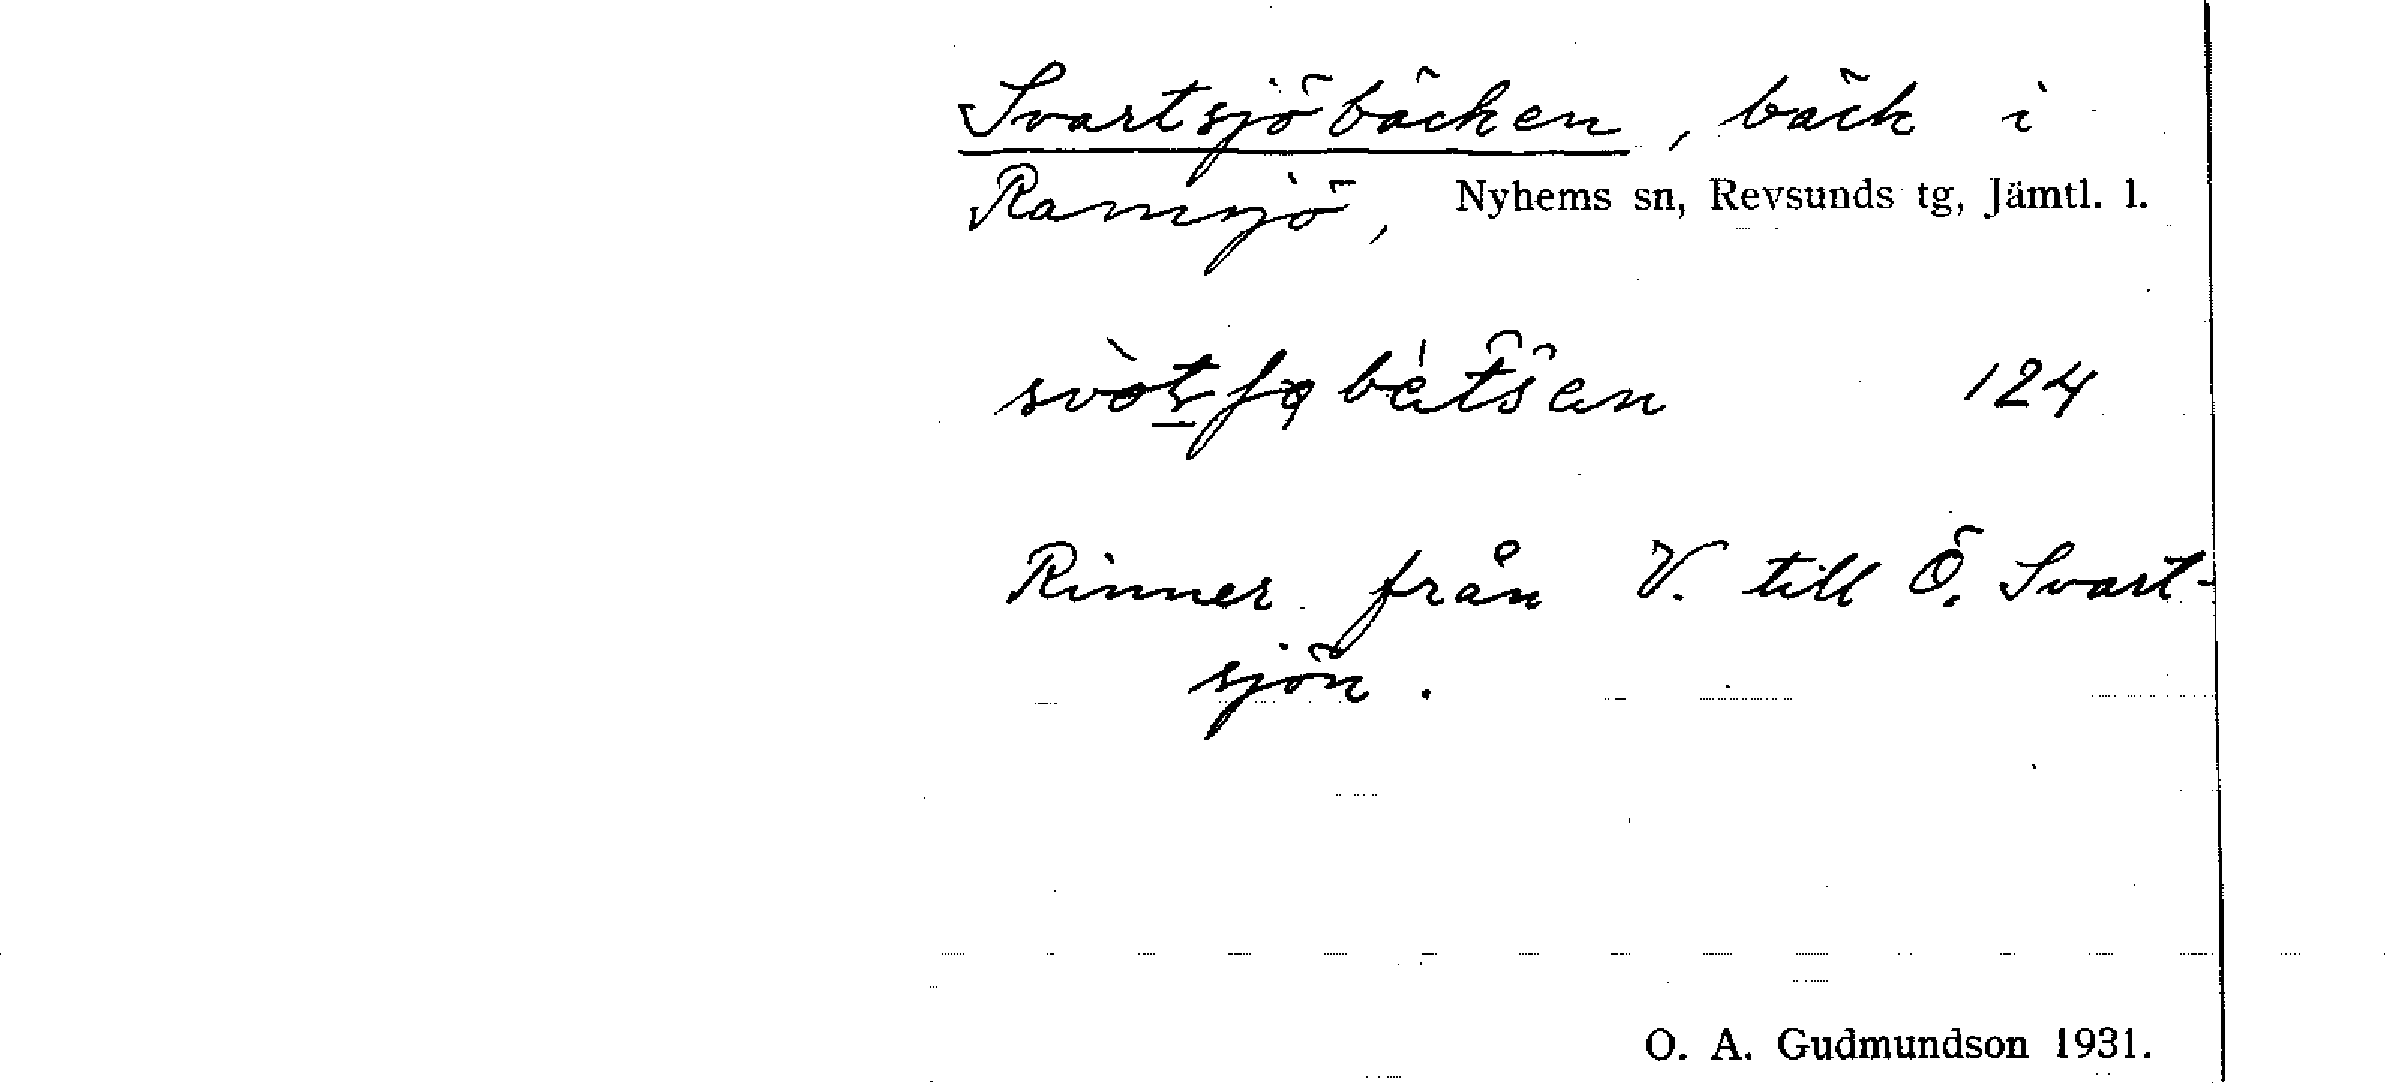 Svartsjöbäcken, bäck i
Ramsjö, Nyhems sn, Revsunds tg, Jämtl. l.
124
Rinner från V. till Ö. Svart-
sjön.
O. A. Gudmundson 1931.